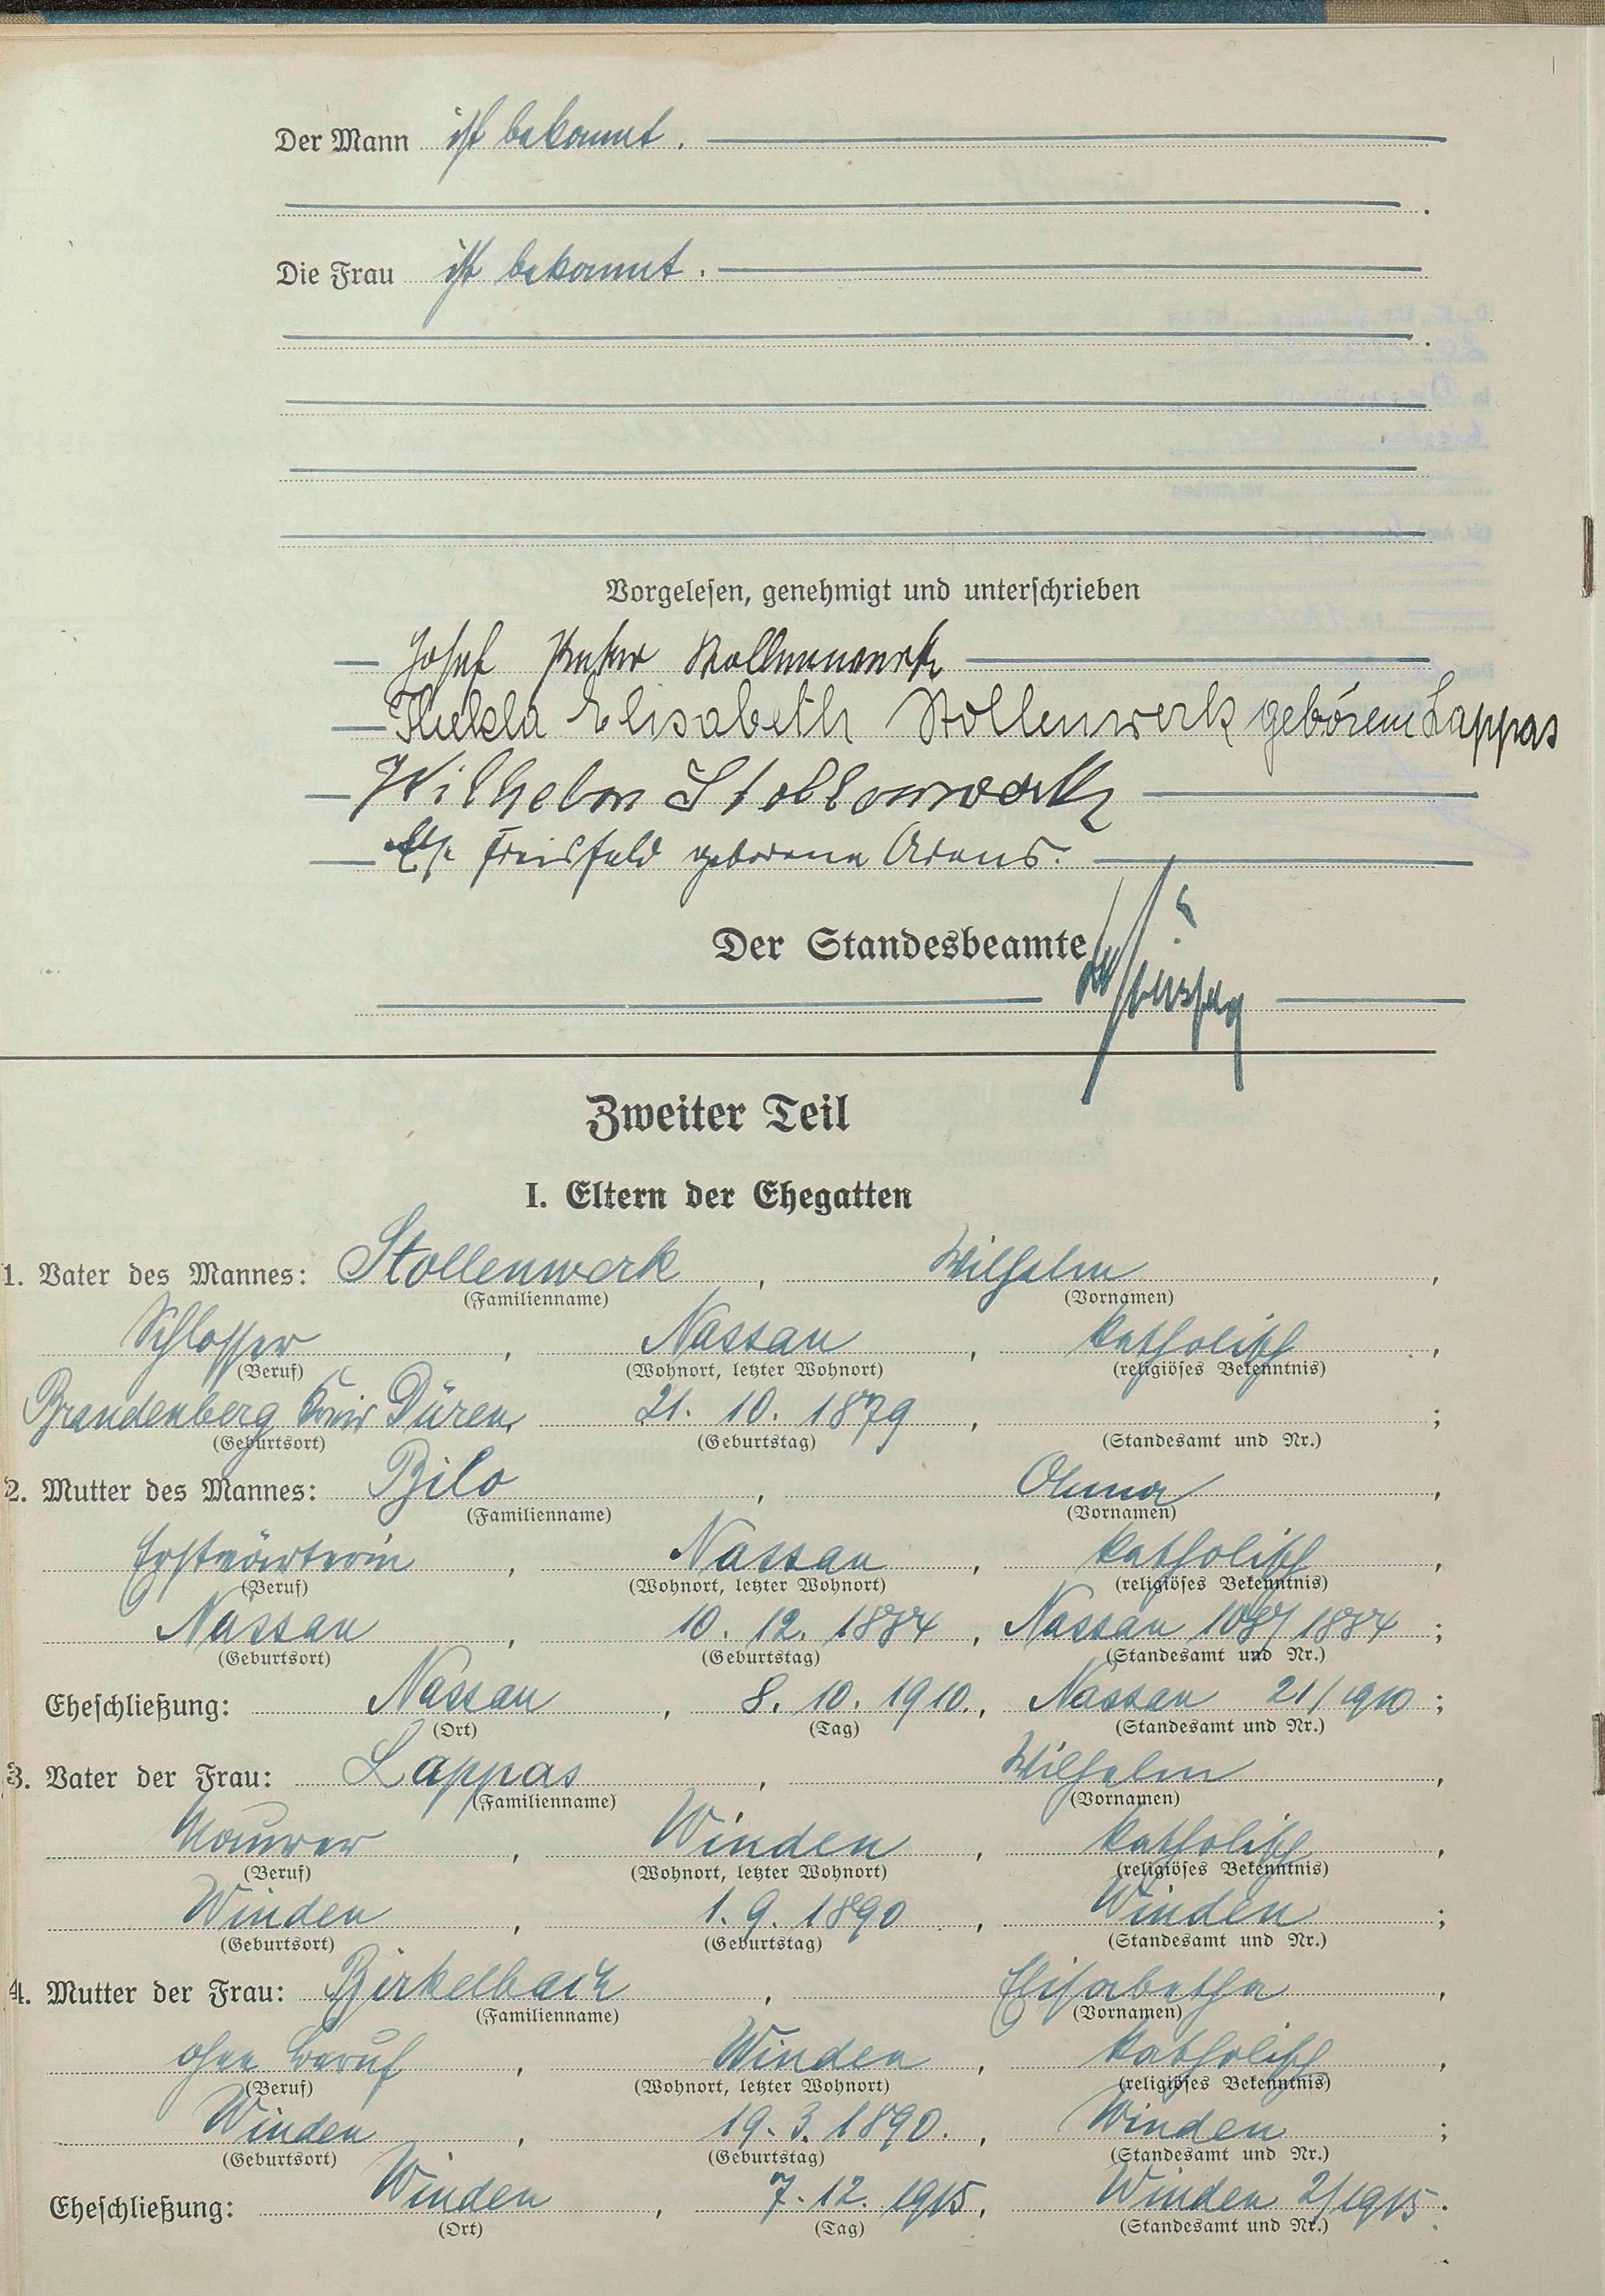 Der Mann ist bekannt.
Die Frau ist bekannt.
Vorgelesen, genehmigt und unterschrieben
Josef Peter Stollenwerk
Thekla Elisabeth Stollenwerk geborene Lappas
Wilhelm Stollenwerk
geborene Arens.
Der Standesbeamte
Zweiter Teil
I. Eltern der Ehegatten
1. Vater des Mannes: Stollenwerk, Wilhelm,
(Familienname) (Vornamen)
Schlosser, Nassau, katholisch,
(Beruf) (Wohnort, letzter Wohnort) (religiöses Bekenntnis)
Brandenberg Kreis Düren, 21. 10. 1879, ;
(Geburtsort) (Geburtstag) (Standesamt und Nr.)
2. Mutter des Mannes: Bilo, Anna,
(Familienname) (Vornamen)
Nassau, katholisch,
(Beruf) (Wohnort, letzter Wohnort) (religiöses Bekenntnis)
Nassau, 10. 12. 1884, Nassau 108/1884;
(Geburtsort) (Geburtstag) (Standesamt und Nr.)
Eheschließung: Nassau, 8. 10. 1910., Nassau 21/1910;
(Ort) (Tag) (Standesamt und Nr.)
3. Vater der Frau: Lappas, Wilhelm,
(Familienname) (Vornamen)
Maurer, Winden, katholisch,
(Beruf) (Wohnort, letzter Wohnort) (religiöses Bekenntnis)
Winden, 1. 9. 1890, Winden;
(Geburtsort) (Geburtstag) (Standesamt und Nr.)
4. Mutter der Frau: Birkelbach, Elisabetha,
(Familienname) (Vornamen)
ohne Beruf, Winden, katholisch,
(Beruf) (Wohnort, letzter Wohnort) (religiöses Bekenntnis)
Winden, 19. 3. 1890., Winden;
(Geburtsort) (Geburtstag) (Standesamt und Nr.)
Eheschließung: Winden, 7. 12. 1915, Winden 2/1915.
(Ort) (Tag) (Standesamt und Nr.)